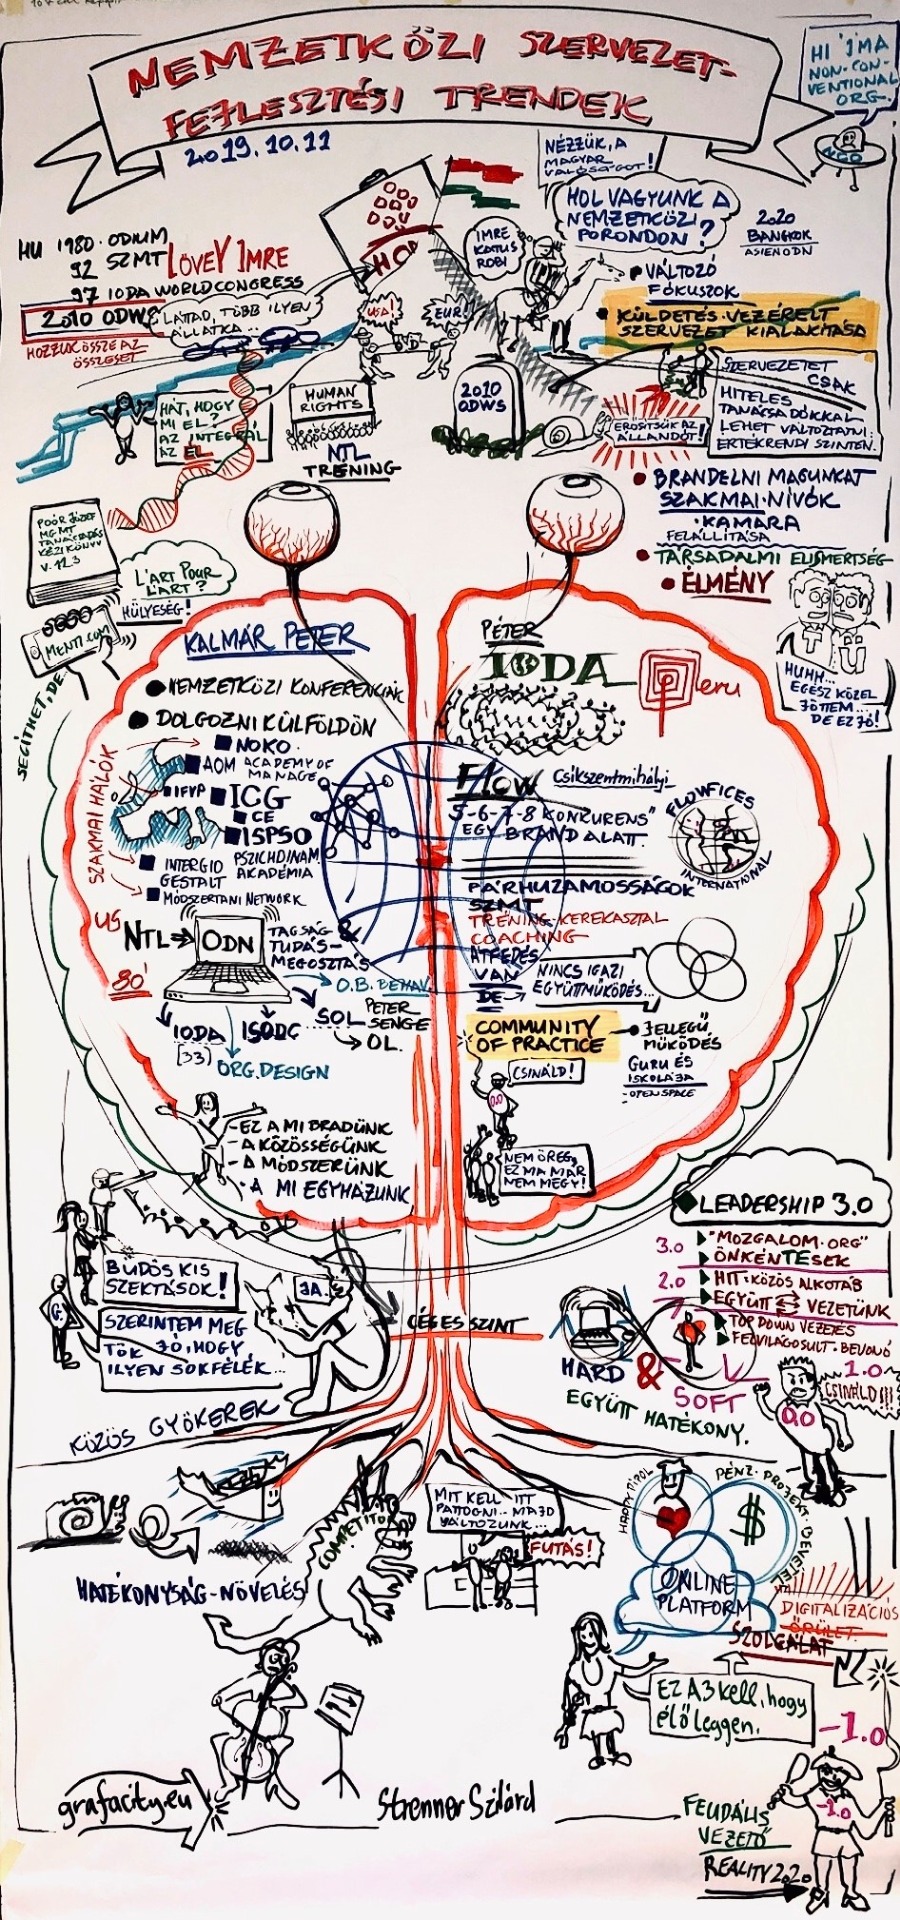 NEMZETKÖZI SZERVEZET-
FEJLESZTÉSI TRENDEK
2019.10.11
HI I'M A
NON-CON-
VENTIONAL
ORG.
NGO
NÉZZÜK, A
MAGYAR
VALÓSÁGOT!
HOL VAGYUNK A
NEMZETKÖZI
PORONDON?
2020
BANGKOK
ASIEN ODN
IMRE
KATUS
ROBI
HU 1980. ODIUM
92 SZMT
LÖVEY IMRE
97 IODA WORLDCONGRESS
2010 ODWS
HOZZUK ÖSSZE AZ
ÖSSZESET
LÁTOD, TÖBB ILYEN
ÁLLATKA...
USA!
EUR!
VÁLTOZÓ
FÓKUSZOK
KÜLDETÉS-VEZÉRELT
SZERVEZET KIALAKÍTÁSA
SZERVEZETET
CSAK
HITELES
TANÁCSADÓKKAL
LEHET VÁLTOZTATNI
ÉRTÉKRENDI SZINTEN.
HÁT, HOGY
MI EL?
AZ INTEGRÁL
AZ ÉL
HUMAN
RIGHTS
NTL
TRÉNING
2010
ODWS
ERŐSÍTSÜK AZ
ÁLLANDÓT!
BRANDELNI MAGUNKAT
SZAKMAI NÍVÓK
KAMARA
FELÁLLÍTÁSA
TÁRSADALMI ELISMERTSÉG
ÉLMÉNY
POÓR JÓZSEF
MGMT
TANÁCSADÁS
KÉZIKÖNYV
V. 123
L'ART POUR
L'ART?
HÜLYESÉG!
MENTI.COM
SEGÍTHET, DE...
HUHH...
EGÉSZ KÖZEL
JÖTTEM...
DE EZ JÓ!
KALMÁR PÉTER
NEMZETKÖZI KONFERENCIÁK
DOLGOZNI KÜLFÖLDÖN
SZAKMAI HÁLÓK
NOKO
AOM ACADEMY OF
MANAGE
IFVP
ICG
CE
ISPSO
PSZICHDINAM.
AKADÉMIA
INTERGIO
GESTALT
MÓDSZERTANI NETWORK
US
NTL
ODN
TAGSÁG &
TUDÁS-
MEGOSZTÁS
80'
O.B. BEHAV.
IODA
(33)
ISODC
SOL
PETER
SENGE
OL.
ORG. DESIGN
EZ A MI BRADÜNK
A KÖZÖSSÉGÜNK
A MÓDSZERÜNK
A MI EGYHÁZUNK
PÉTER
IODA
Peru
FLOW
Csikszentmihályi
5-6-7-8 KONKURENS"
EGY BRAND ALATT.
FLOWFICES
INTERNATIONAL
PÁRHUZAMOSSÁGOK
SZMT
TRÉNING-KEREKASZTAL
COACHING
ÁTFEDÉS
VAN
DE
NINCS IGAZI
EGYÜTTMŰKÖDÉS...
COMMUNITY
OF PRACTICE
JELLEGŰ
MŰKÖDÉS
GURU ÉS
ISKOLÁJA
- OPEN SPACE
CSINÁLD!
0.0
NEM ÖREG,
EZ MA MÁR
NEM MEGY!
BÜDÖS KIS
SZEKTÁSOK!
SZERINTEM MEG
TÖK JÓ, HOGY
ILYEN SOKFÉLÉK...
JA.
KÖZÖS GYÖKEREK
CÉGES SZINT
LEADERSHIP 3.0
3.0
"MOZGALOM.ORG"
ÖNKÉNTESEK
2.0
HIT-KÖZÖS ALKOTÁS
EGYÜTT VEZETÜNK
TOP DOWN VEZETÉS
FELVILÁGOSULT-BEVONÓ
1.0
CSINÁLD!!!
0.0
HARD & SOFT
EGYÜTT HATÉKONY.
HATÉKONYSÁG-NÖVELÉS
COMPETITOR
MIT KELL ITT
PATTOGNI.. MAJD
VÁLTOZUNK...
FUTÁS!
PÉNZ-PROJEKT-BEVÉTEL
$
ONLINE
PLATFORM
DIGITALIZÁCIÓS
ŐRÜLET
SZOLGÁLAT
EZ A3 kell, hogy
élő leggen.
-1.0
-1.0
FEUDÁLIS
VEZETŐ
REALITY 2.20
grafacity.eu
Strenner Szilárd